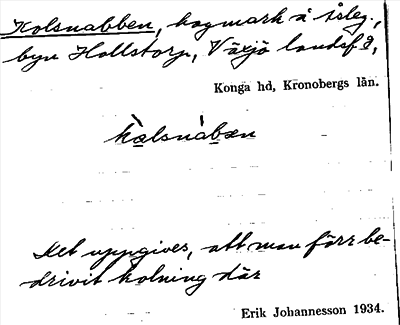 Kolsnabben, hagmark å isleg.,
byn Hallstorp, Växjö landsf,
Konga hd, Kronobergs län.
kàlsnàbæn
Det uppgives, att man förr be-
drivit kolning där
Erik Johannesson 1934.